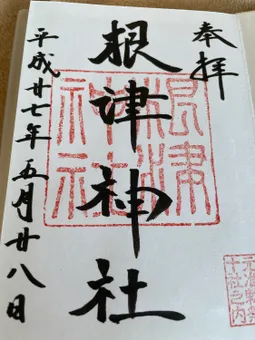 奉拝
根津神社
平成廿七年五月廿八日
根津
神社